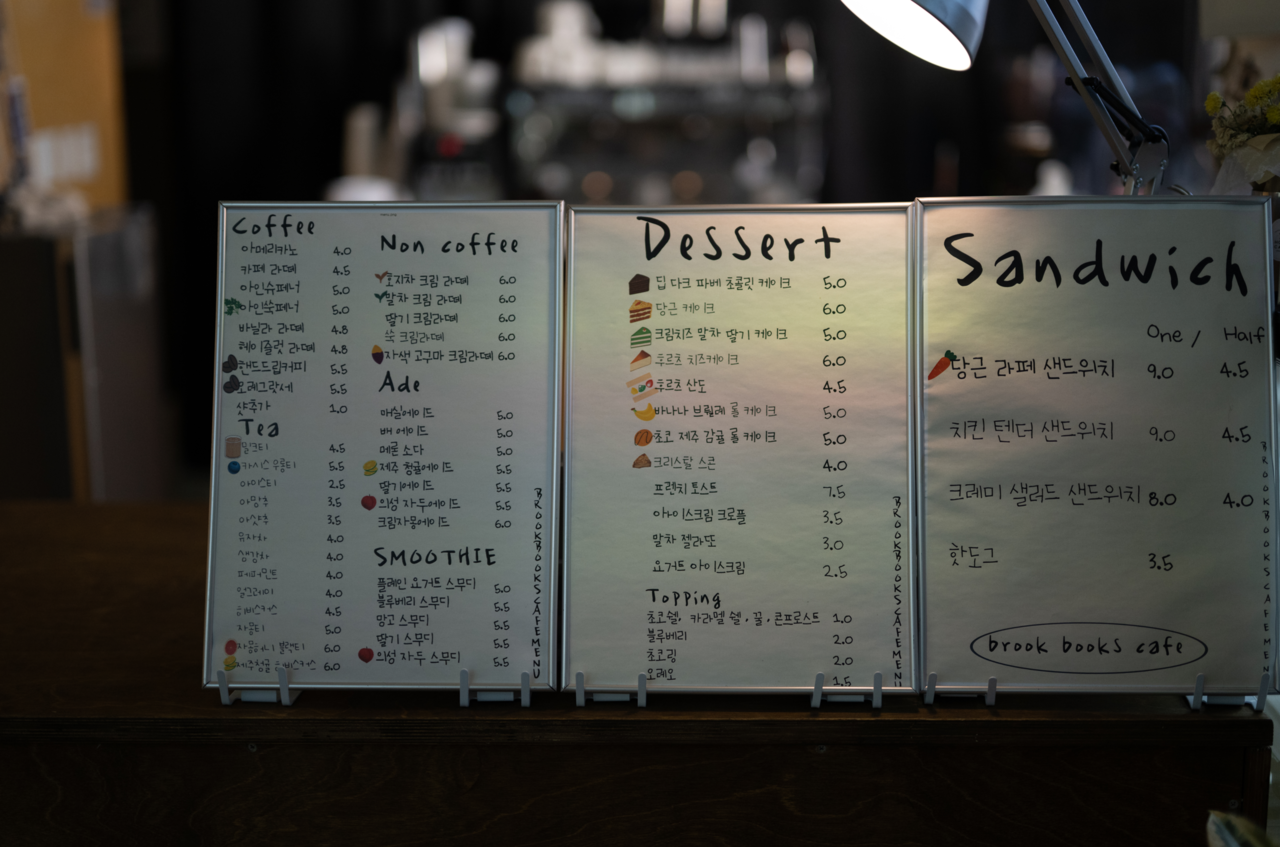 Coffee
아메리카노 4.0
카페 라떼 4.5
아인슈페너 5.0
아인쑥페너 5.0
바닐라 라떼 4.8
헤이즐럿 라떼 4.8
핸드드립커피 5.5
오레그랏세 5.5
샷추가 1.0
Tea
밀크티 4.5
카시스 우롱티 5.5
아이스티 2.5
아망추 3.5
아샷추 3.5
유자차 4.0
생강차 4.0
페퍼민트 4.0
얼그레이 4.0
히비스커스 4.5
자몽티 5.0
자몽허니 블랙티 6.0
제주청귤 히비스커스 6.0
Non coffee
호지차 크림 라떼 6.0
말차 크림 라떼 6.0
딸기 크림라떼 6.0
쑥 크림라떼 6.0
자색 고구마 크림라떼 6.0
Ade
매실에이드 5.0
배 에이드 5.0
메론 소다 5.0
제주 청귤에이드 5.5
딸기에이드 5.5
의성 자두에이드 5.5
크림자몽에이드 6.0
SMOOTHIE
플레인 요거트 스무디 5.0
블루베리 스무디 5.5
망고 스무디 5.5
딸기 스무디 5.5
의성 자두 스무디 5.5
BROOKBOOKSCAFEMENU
Dessert
딥 다크 파베 초콜릿 케이크 5.0
당근 케이크 6.0
크림치즈 말차 딸기 케이크 5.0
후르츠 치즈케이크 6.0
후르츠 산도 4.5
바나나 브륄레 롤 케이크 5.0
초코 제주 감귤 롤 케이크 5.0
크리스탈 스콘 4.0
프렌치 토스트 7.5
아이스크림 크로플 3.5
말차 젤라또 3.0
요거트 아이스크림 2.5
Topping
초코쉘, 카라멜 쉘, 꿀, 콘프로스트 1.0
블루베리 2.0
초코링 2.0
오레오 1.5
BROOKBOOKSCAFEMENU
Sandwich
One / Half
당근 라페 샌드위치 9.0 4.5
치킨 텐더 샌드위치 9.0 4.5
크레미 샐러드 샌드위치 8.0 4.0
핫도그 3.5
brook books cafe
BROOKBOOKSCAFEMEN